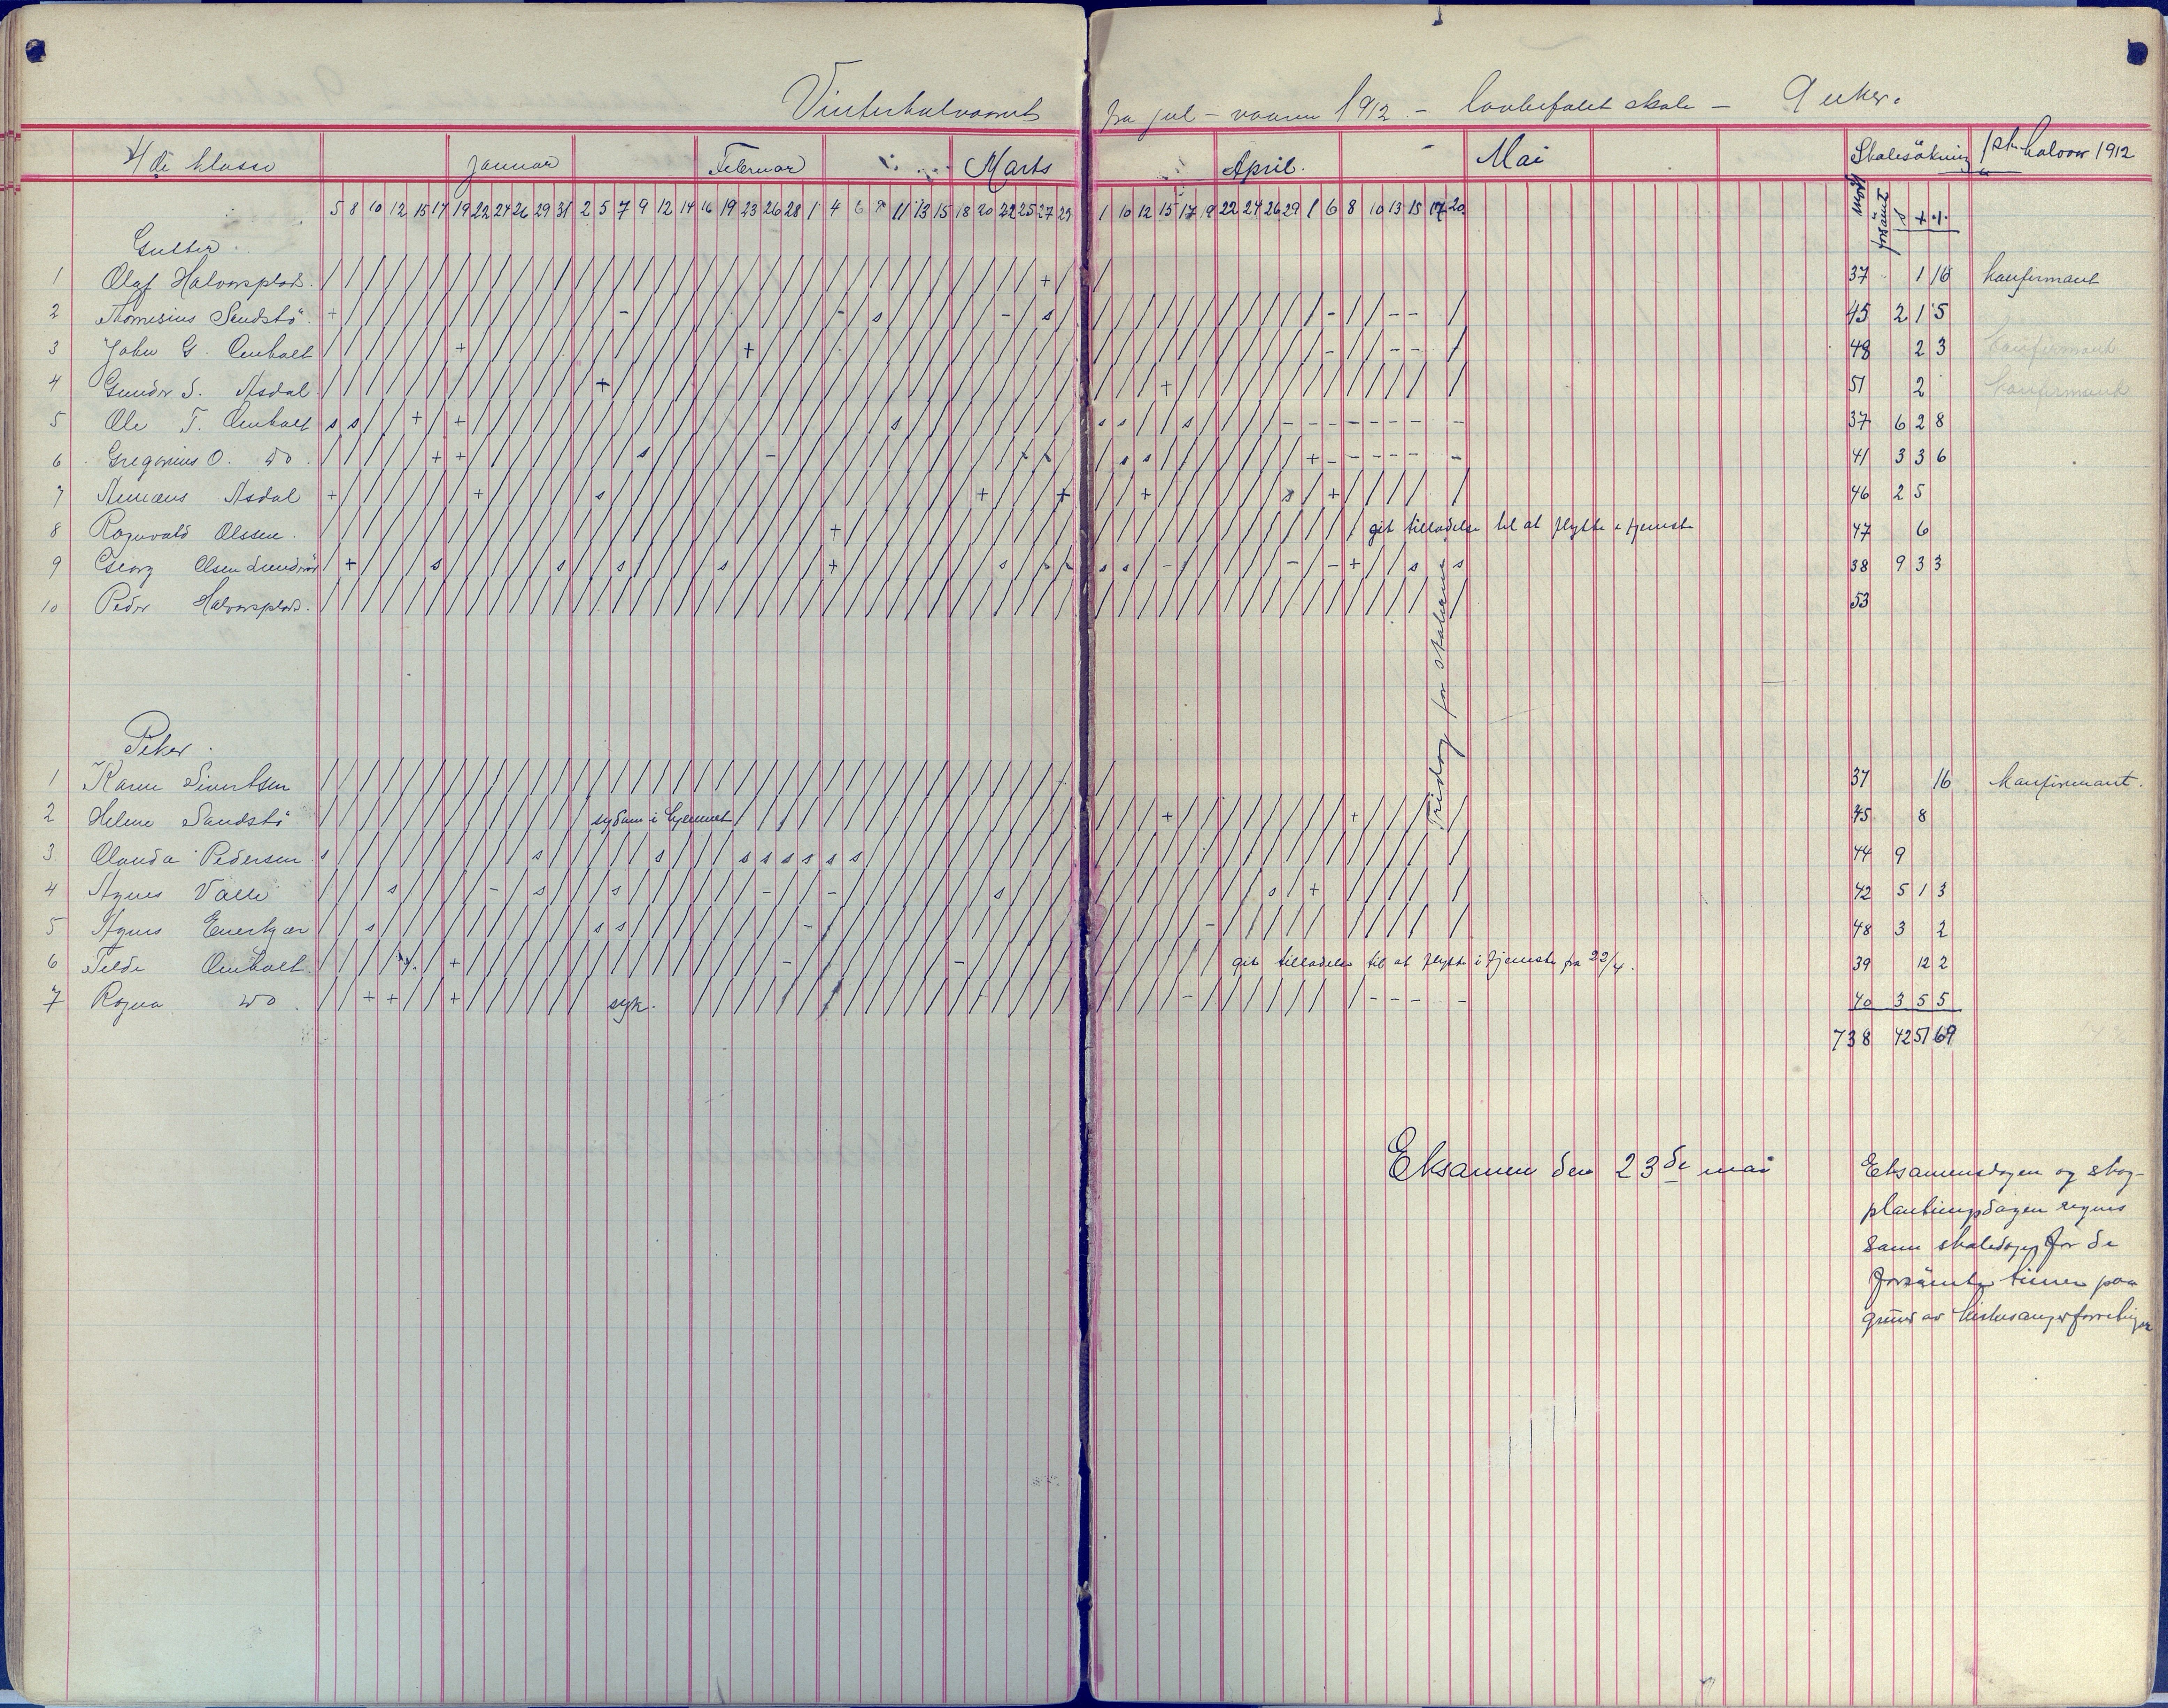 Vinterhalvaaret fra jul – vaaren 1912 – lovbefalet skole – 9 uker.
4de klasse Januar Februar Marts April. Mai Skolesökning 1ste halvaar 1912
5 8 10 12 15 17 19 22 24 26 29 31 2 5 7 9 12 14 16 19 23 26 28 1 4 6 8 11 13 15 18 20 22 25 27 29 1 10 12 15 17 19 22 24 26 29 1 6 8 10 13 15 17 20 mödt forsömt s + ·/·
Gutter
1 Olaf Halvorsplads. 37 1 16 konfirmant
2 Thomesius Sandstö 45 2 1 5
3 John G. Omholt 48 2 3 konfirmant
4 Gunder S. Asdal 51 2 konfirmant
5 Ole T. Omholt 37 6 2 8
6 Gregorius O. do 41 3 3 6
7 Asdal 46 2 5
8 Ragnvald Olssen. git tilladelse til at flytte i tjeneste 47 6
9 Georg Olsen 38 9 3 3
10 Peder Halvorsplads. 53
Fridag for skolerne
Piker
1 Karen Sivertsen 37 16 konfirmant.
2 Helene Sandstö sygdom i hjemmet 45 8
3 Olanda Pedersen 44 9
4 Agnes Valle 42 5 1 3
5 Agnes Enerkjær 48 3 2
6 Telde Omholt git tilladelse til at flytte i tjeneste fra 22/4. 39 12 2
7 Ragna do syk. 40 3 5 5
738 42 51 69
Eksamen den 23de mai
Eksamensdagen og skog-
plantningsdagen regnes
som skoledager for de
forsömte timer paa
grund av kirkesangerforretninger